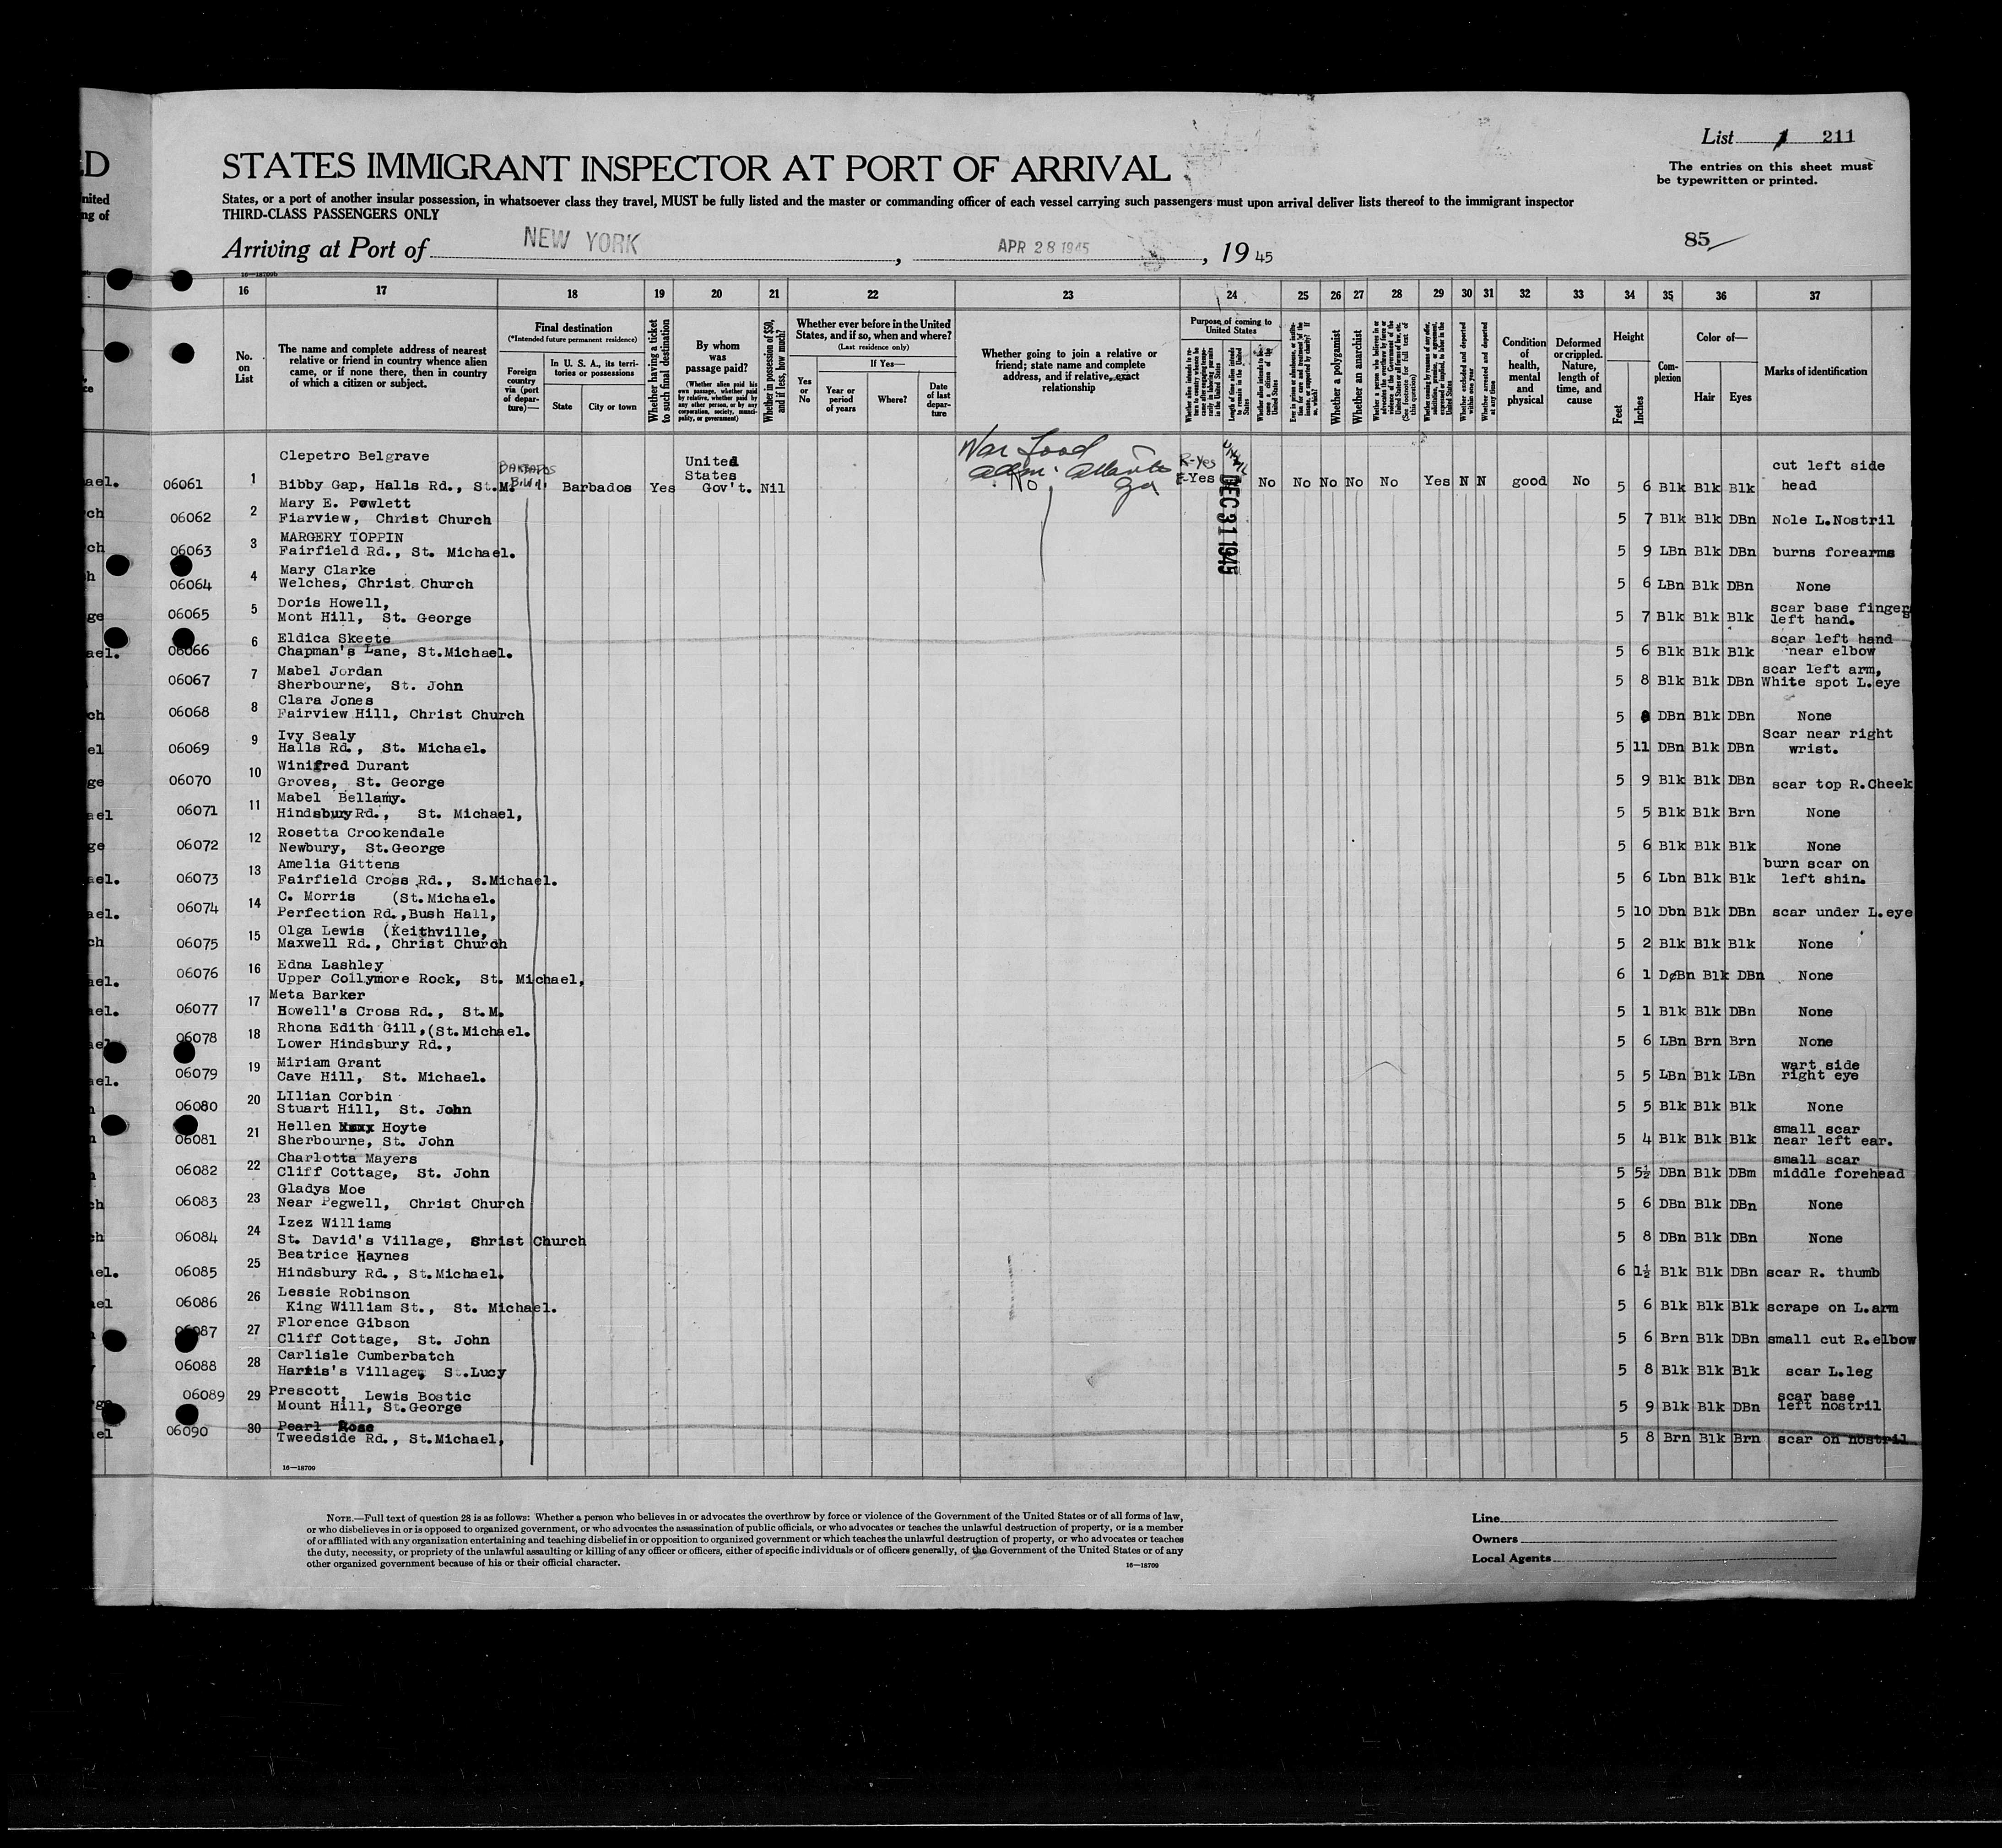 List 1 211
The entries on this sheet must
be typewritten or printed.
STATES IMMIGRANT INSPECTOR AT PORT OF ARRIVAL
States, or a port of another insular possession, in whatsoever class they travel, MUST be fully listed and the master or commanding officer of each vessel carrying such passengers must upon arrival deliver lists thereof to the immigrant inspector
THIRD-CLASS PASSENGERS ONLY
85
Arriving at Port of NEW YORK, APR 28 1945, 19 45
16 17 18 19 20 21 22 23 24 25 26 27 28 29 30 31 32 33 34 35 36 37
No. on List
The name and complete address of nearest relative or friend in country whence alien came, or if none there, then in country of which a citizen or subject.
Final destination
(*Intended future permanent residence)
Foreign country via (port of departure)—
In U. S. A., its territories or possessions
State
City or town
Whether having a ticket to such final destination
By whom was passage paid?
(Whether alien paid his own passage, whether paid by relative, whether paid by any other person, or by any corporation, society, municipality, or government)
Whether in possession of $50, and if less, how much?
Whether ever before in the United States, and if so, when and where?
(Last residence only)
If Yes—
Yes or No
Year or period of years
Where?
Date of last departure
Whether going to join a relative or friend; state name and complete address, and if relative, exact relationship
Purpose of coming to United States
Length of time alien intends to remain in the United States
Whether a polygamist
Whether an anarchist
Whether excluded and deported within one year
Whether arrested and deported at any time
Condition of health, mental and physical
Deformed or crippled. Nature, length of time, and cause
Height
Feet
Inches
Complexion
Color of—
Hair
Eyes
Marks of identification
Clepetro Belgrave United States War Food Adm. Atlanta Ga R-Yes cut left side
06061 1 Bibby Gap, Halls Rd., St.M. Barbados Yes Gov't. Nil No E-Yes DEC 31 1945 No No No No No Yes N N good No 5 6 Blk Blk Blk head
Mary E. Powlett
06062 2 Fiarview, Christ Church 5 7 Blk Blk DBn Nole L.Nostril
MARGERY TOPPIN
06063 3 Fairfield Rd., St. Michael. 5 9 LBn Blk DBn burns forearms
Mary Clarke
06064 4 Welches, Christ Church 5 6 LBn Blk DBn None
Doris Howell, scar base fingers
06065 5 Mont Hill, St. George 5 7 Blk Blk Blk left hand.
Eldica Skeete scar left hand
06066 6 Chapman's Lane, St.Michael. 5 6 Blk Blk Blk near elbow
Mabel Jordan scar left arm,
06067 7 Sherbourne, St. John 5 8 Blk Blk DBn White spot L.eye
Clara Jones
06068 8 Fairview Hill, Christ Church 5 8 DBn Blk DBn None
Ivy Sealy Scar near right
06069 9 Halls Rd., St. Michael. 5 11 DBn Blk DBn wrist.
Winifred Durant
06070 10 Groves, St. George 5 9 Blk Blk DBn scar top R.Cheek
Mabel Bellamy.
06071 11 Hindsbury Rd., St. Michael, 5 5 Blk Blk Brn None
Rosetta Crookendale
06072 12 Newbury, St.George 5 6 Blk Blk Blk None
Amelia Gittens burn scar on
06073 13 Fairfield Cross Rd., S.Michael. 5 6 Lbn Blk Blk left shin.
C. Morris (St.Michael.
06074 14 Perfection Rd.,Bush Hall, 5 10 Dbn Blk DBn scar under L.eye
Olga Lewis (Keithville,
06075 15 Maxwell Rd., Christ Church 5 2 Blk Blk Blk None
Edna Lashley
06076 16 Upper Collymore Rock, St. Michael, 6 1 DBn Blk DBn None
Meta Barker
06077 17 Howell's Cross Rd., St.M. 5 1 Blk Blk DBn None
Rhona Edith Gill,(St.Michael.
06078 18 Lower Hindsbury Rd., 5 6 LBn Brn Brn None
Miriam Grant wart side
06079 19 Cave Hill, St. Michael. 5 5 LBn Blk LBn right eye
LIlian Corbin
06080 20 Stuart Hill, St. John 5 5 Blk Blk Blk None
Hellen Hoyte small scar
06081 21 Sherbourne, St. John 5 4 Blk Blk Blk near left ear.
Charlotta Mayers small scar
06082 22 Cliff Cottage, St. John 5 5½ DBn Blk DBm middle forehead
Gladys Moe
06083 23 Near Pegwell, Christ Church 5 6 DBn Blk DBn None
Izez Williams
06084 24 St. David's Village, Christ Church 5 8 DBn Blk DBn None
Beatrice Haynes
06085 25 Hindsbury Rd., St.Michael. 6 1½ Blk Blk DBn scar R. thumb
Lessie Robinson
06086 26 King William St., St. Michael. 5 6 Blk Blk Blk scrape on L.arm
Florence Gibson
06087 27 Cliff Cottage, St. John 5 6 Brn Blk DBn small cut R.elbow
Carlisle Cumberbatch
06088 28 Harris's Village, St.Lucy 5 8 Blk Blk Blk scar L.leg
Prescott Lewis Bostic scar base
06089 29 Mount Hill, St.George 5 9 Blk Blk DBn left nostril
Pearl Rose
06090 30 Tweedside Rd., St.Michael, 5 8 Brn Blk Brn scar on nostril
16—18709
NOTE.—Full text of question 28 is as follows: Whether a person who believes in or advocates the overthrow by force or violence of the Government of the United States or of all forms of law,
or who disbelieves in or is opposed to organized government, or who advocates the assassination of public officials, or who advocates or teaches the unlawful destruction of property, or is a member
of or affiliated with any organization entertaining and teaching disbelief in or opposition to organized government or which teaches the unlawful destruction of property, or who advocates or teaches
the duty, necessity, or propriety of the unlawful assaulting or killing of any officer or officers, either of specific individuals or of officers generally, of the Government of the United States or of any
other organized government because of his or their official character.
16—18709
Line
Owners
Local Agents